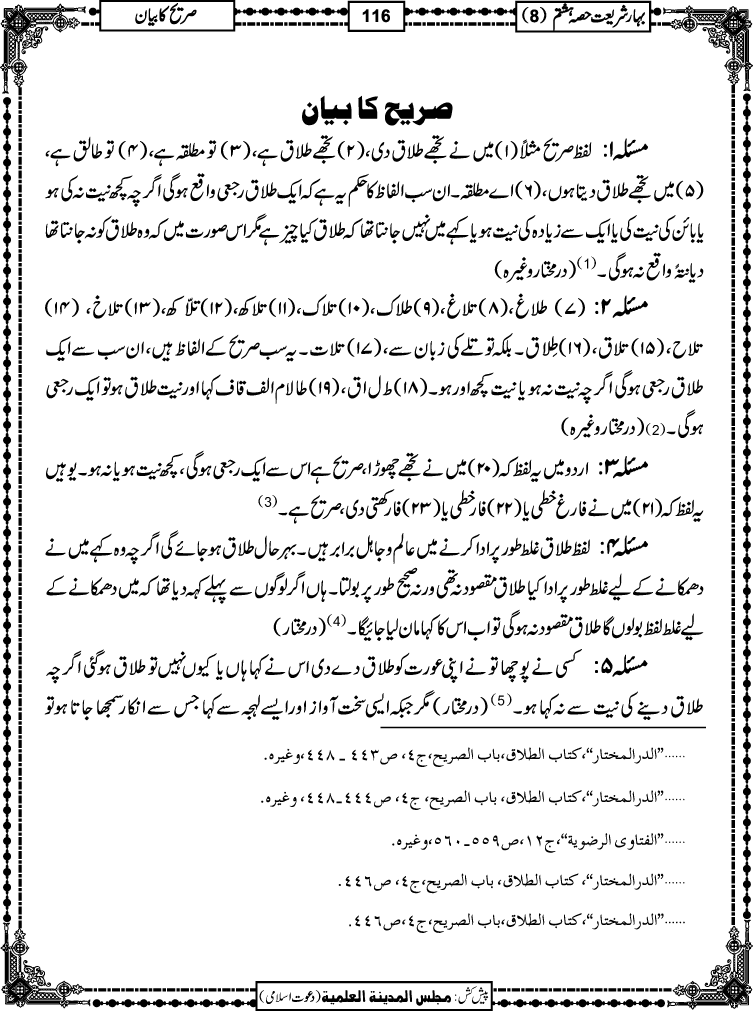 بہار شریعت حصہ ہشتم (8)
116
صریح کا بیان
صریح کا بیان
مسئلہ ۱: لفظ صریح مثلاً (۱) میں نے تجھے طلاق دی، (۲) تجھے طلاق ہے، (۳) تو مطلقہ ہے، (۴) تو طالق ہے،
(۵) میں تجھے طلاق دیتا ہوں، (۶) اے مطلقہ۔ ان سب الفاظ کا حکم یہ ہے کہ ایک طلاق رجعی واقع ہوگی اگرچہ کچھ نیت نہ کی ہو
یا بائن کی نیت کی یا ایک سے زیادہ کی نیت ہو یا کہے میں نہیں جانتا تھا کہ طلاق کیا چیز ہے مگر اس صورت میں کہ وہ طلاق کو نہ جانتا تھا
دیانۃً واقع نہ ہوگی۔ (1) (درمختار وغیرہ)
مسئلہ ۲: (۷) طلاغ، (۸) تلاغ، (۹) طلاک، (۱۰) تلاک، (۱۱) تلاکھ، (۱۲) تلّاکھ، (۱۳) تلاخ، (۱۴)
تلاح، (۱۵) تلاق، (۱۶) طِلاق۔ بلکہ توتلے کی زبان سے، (۱۷) تلات۔ یہ سب صریح کے الفاظ ہیں، ان سب سے ایک
طلاق رجعی ہوگی اگرچہ نیت نہ ہو یا نیت کچھ اور ہو۔ (۱۸) ط ل ا ق، (۱۹) طا لام الف قاف کہا اور نیت طلاق ہو تو ایک رجعی
ہوگی۔ (2) (درمختار وغیرہ)
مسئلہ ۳: اردو میں یہ لفظ کہ (۲۰) میں نے تجھے چھوڑا، صریح ہے اس سے ایک رجعی ہوگی، کچھ نیت ہو یا نہ ہو۔ یوہیں
یہ لفظ کہ (۲۱) میں نے فارغ خطی یا (۲۲) فار خطی یا (۲۳) فار کھتی دی، صریح ہے۔ (3)
مسئلہ ۴: لفظ طلاق غلط طور پر ادا کرنے میں عالم و جاہل برابر ہیں۔ بہر حال طلاق ہو جائے گی اگرچہ وہ کہے میں نے
دھمکانے کے لیے غلط طور پر ادا کیا طلاق مقصود نہ تھی ورنہ صحیح طور پر بولتا۔ ہاں اگر لوگوں سے پہلے کہہ دیا تھا کہ میں دھمکانے کے
لیے غلط لفظ بولوں گا طلاق مقصود نہ ہوگی تو اب اس کا کہا مان لیا جائیگا۔ (4) (درمختار)
مسئلہ ۵: کسی نے پوچھا تو نے اپنی عورت کو طلاق دے دی اس نے کہا ہاں یا کیوں نہیں تو طلاق ہوگئی اگرچہ
طلاق دینے کی نیت سے نہ کہا ہو۔ (5) (درمختار) مگر جبکہ ایسی سخت آواز اور ایسے لہجہ سے کہا جس سے انکار سمجھا جاتا ہو تو
......”الدرالمختار“، کتاب الطلاق، باب الصریح، ج٤، ص٤٤٣ ـ ٤٤٨، وغیرہ.
......”الدرالمختار“، کتاب الطلاق، باب الصریح، ج٤، ص٤٤٤ـ٤٤٨، وغیرہ.
......”الفتاوی الرضویة“، ج١٢، ص٥٥٩ـ٥٦٠، وغیرہ.
......”الدرالمختار“، کتاب الطلاق، باب الصریح، ج٤، ص٤٤٦.
......”الدرالمختار“، کتاب الطلاق، باب الصریح، ج٤، ص٤٤٦.
پیش کش: مجلس المدینة العلمیة (دعوت اسلامی)